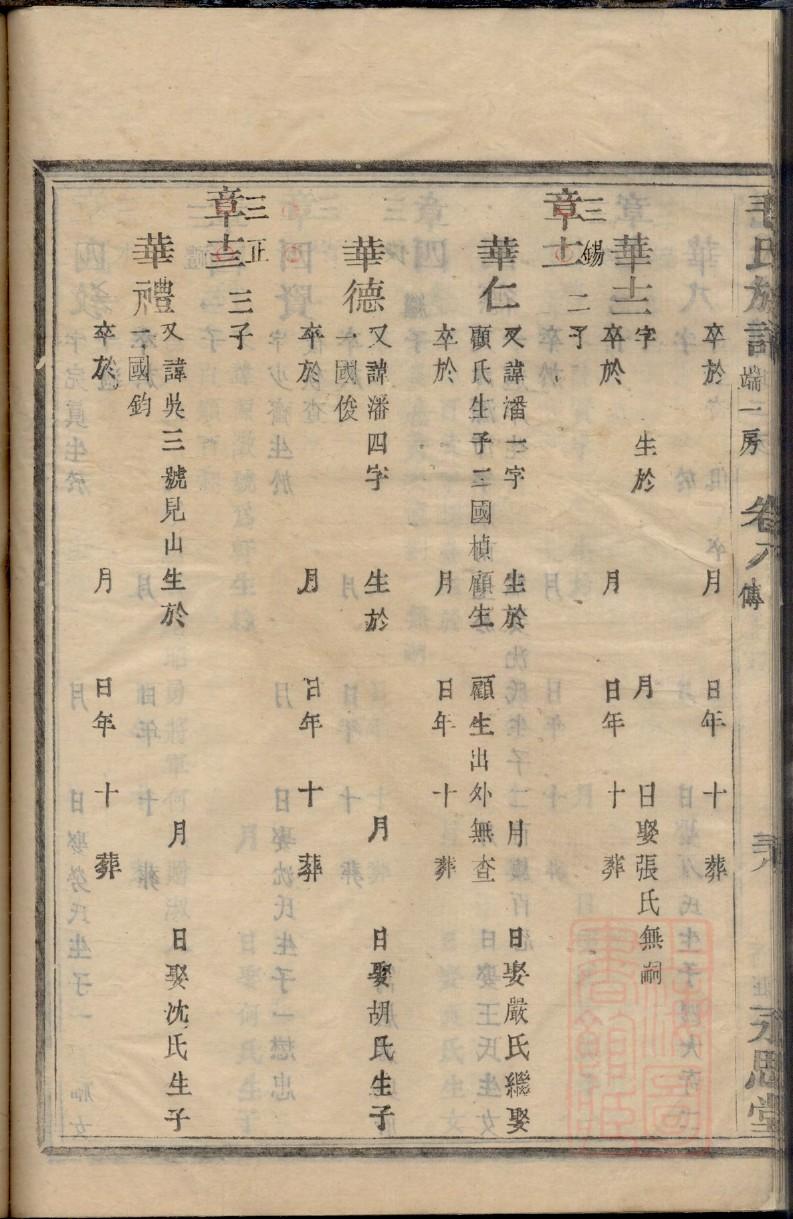 毛氏族譜 端一房 卷六 傳 永思堂
卒於 月 日年 十 葬
華十二 字 生於 月 日娶張氏無嗣
卒於 月 日年 十 葬
三錫
章十二 二子
華仁 又諱潘一字 生於 月 日娶嚴氏繼娶
顧氏生子二國楨顧生 顧生出外無查
卒於 月 日年 十 葬
華德 又諱潘四字 生於 月 日娶胡氏生子
一國俊
卒於 月 日年 十 葬
三正
章十三 三子
華禮 又諱吳三號見山生於 月 日娶沈氏生子
一國鈞
卒於 月 日年 十 葬